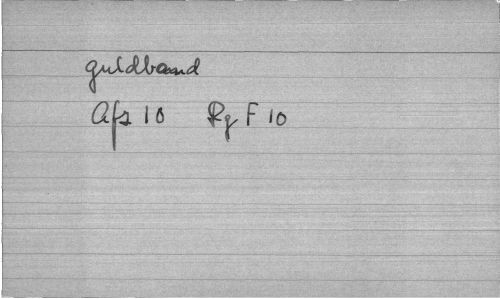 guldband
Afz 10 Rg F 10